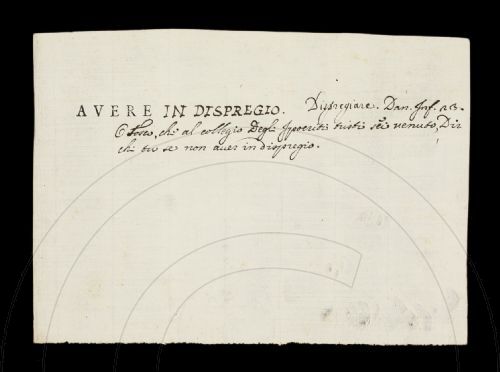 AVERE IN DISPREGIO. Dispregiare. Dan. Inf. 23.
O Tosco, ch' al collegio Degli Ipocriti tristi sei venuto, Dir
chi tu se non aver in dispregio.